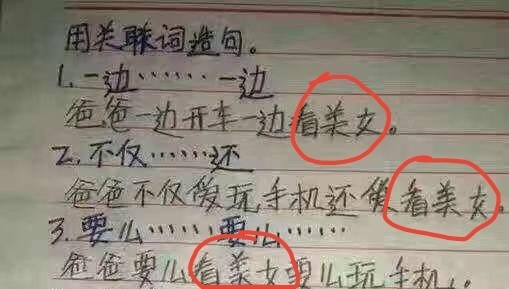 用关联词造句。
1.一边……一边
爸爸一边开车一边看美女。
2.不仅……还
爸爸不仅爱玩手机还爱看美女。
3.要么……要么……
爸爸要么看美女要么玩手机。